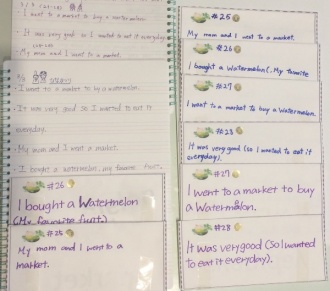 I went to a market to buy a watermelon.
It was very good so I wanted to eat it
everyday.
My mom and I went to a market.
I went to a market to buy a watermelon.
It was very good so I wanted to eat it
everyday.
My mom and I went to a market.
I bought a watermelon, my favorite
#26
I bought a Watermelon
(My favorite fruit.)
#25
My mom and I went to a
market.
#25
My mom and I went to a market.
#26
I bought a Watermelon (My favorite
#27
I went to a market to buy a Watermelon.
#28
It was very good (so I wanted to eat it
everyday).
#27
I went to a market to buy
a Watermelon.
#28
It was very good (So I wanted
to eat it everyday).